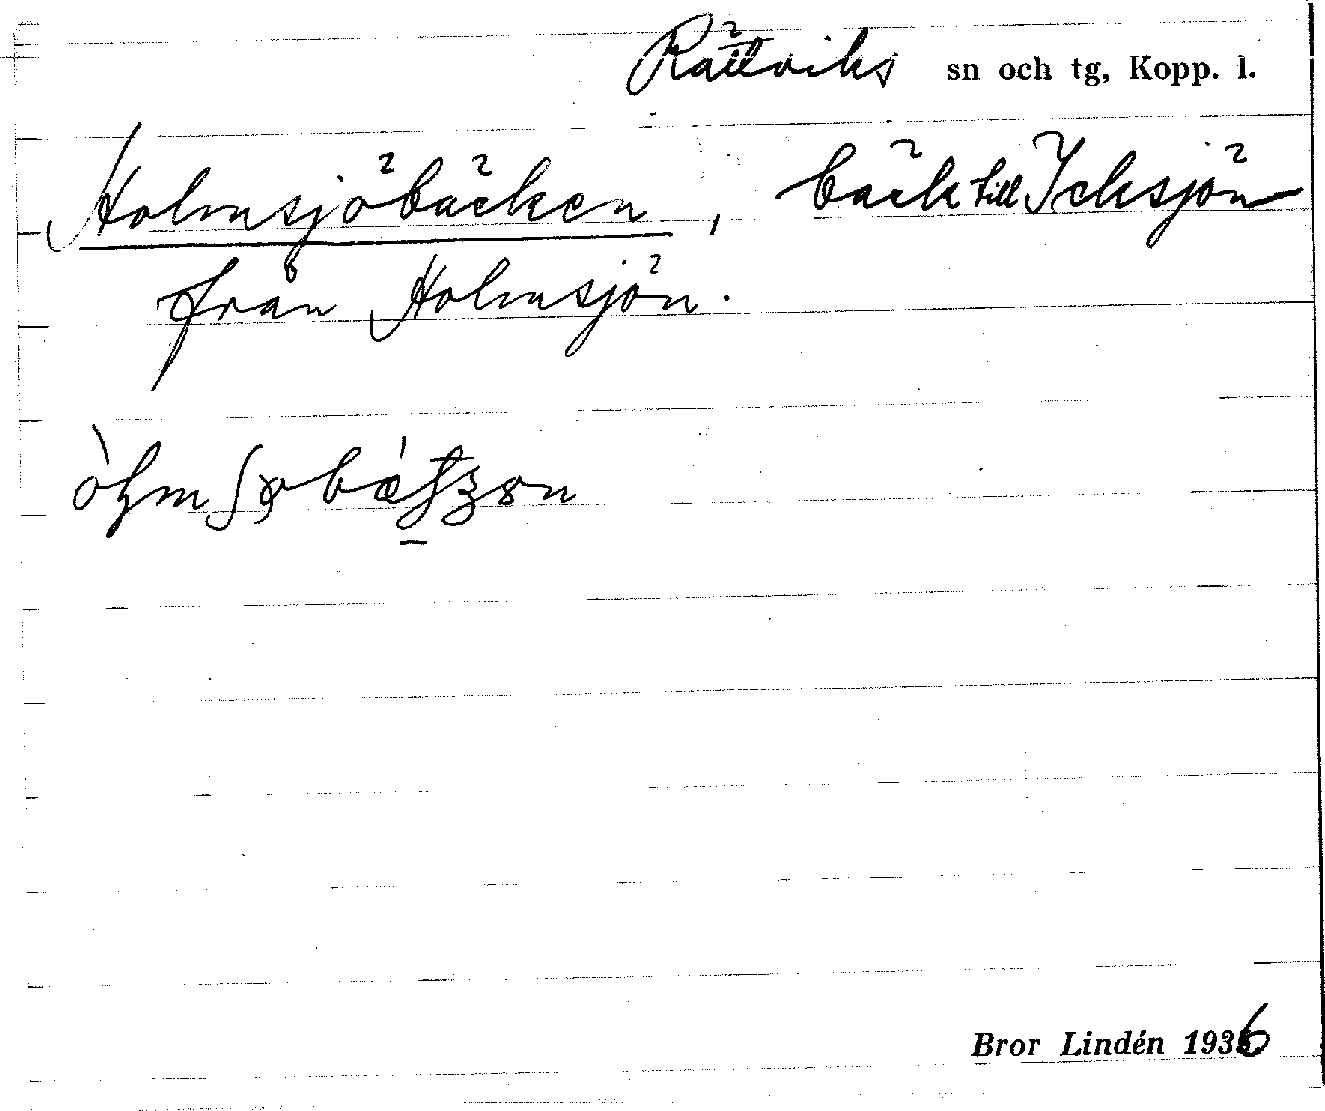 Rättviks sn och tg, Kopp. l.
Holmsjöbäcken, bäck till Icksjön
från Holmsjön.
Bror Lindén 1936